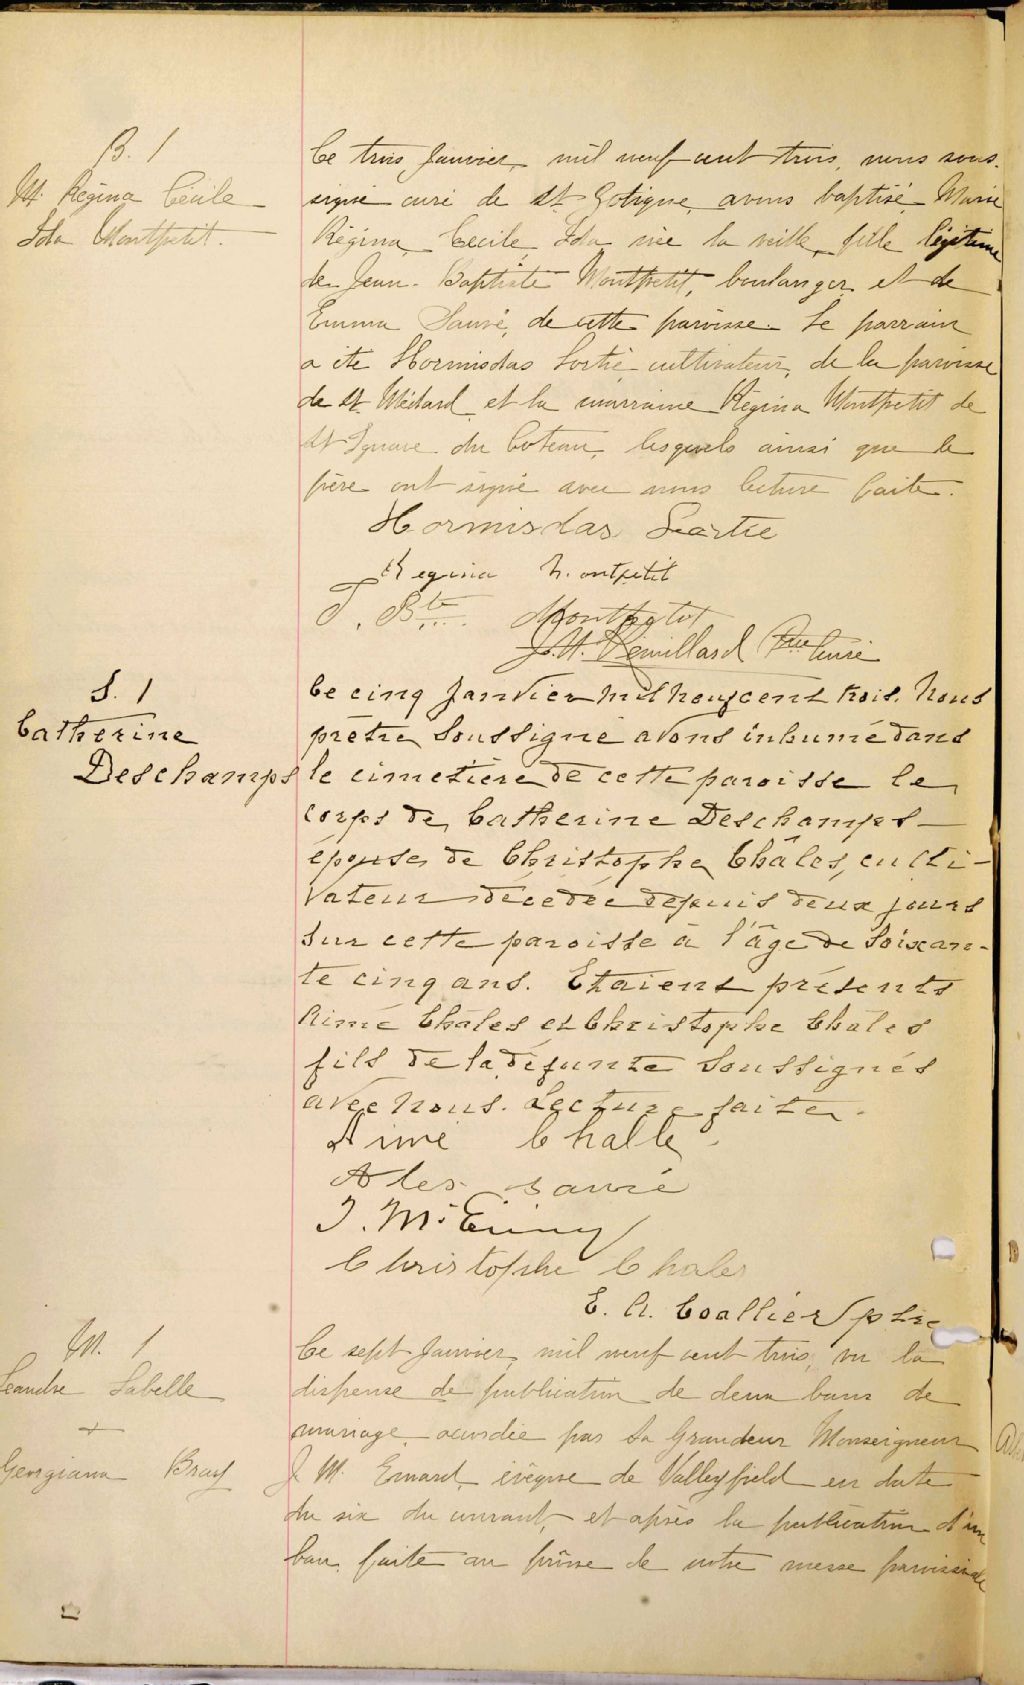 B. 1
M. Régina Cécile
Ida Montpetit.
Ce trois Janvier, mil neuf cent trois, nous sous-
signé curé de St Zotique, avons baptisé, Marie
Régina, Cécile, Ida née la veille, fille légitime
de Jean-Baptiste Montpetit, boulanger et de
Emma Sauvé, de cette paroisse. Le parrain
a été Hormisdas cultivateur, de la paroisse
de St Médard et la marraine Régina Montpetit de
St Ignace du Coteau, lesquels ainsi que le
père ont signé avec nous lecture faite.
Hormisdas
Regina Montpetit
J. Bte Montpetit
Ptre Curé
S. 1
Catherine
Deschamps
Ce cinq Janvier mil neuf cent trois. Nous
prêtre soussigné avons inhumé dans
le cimetière de cette paroisse le
corps de Catherine Deschamps
épouse de Christophe Châles, culti-
vateur décédée depuis deux jours
sur cette paroisse à l'âge de soixan-
te cinq ans. Etaient présents
Aimé Châles et Christophe Châles
fils de la défunte soussignés
avec nous. Lecture faite.
Aimé Challe
Alex. Sauvé
Christophe Chales
E. A. Coallier ptre
M. 1
Léandre Labelle
+
Georgiana Bray
Ce sept Janvier, mil neuf cent trois, vu la
dispense de publication de deux bans de
mariage accordée par Sa Grandeur Monseigneur
J M. Emard, évêque de Valleyfield en date
du six du courant, et après la publication d'un
ban, faite au prône de notre messe paroissiale